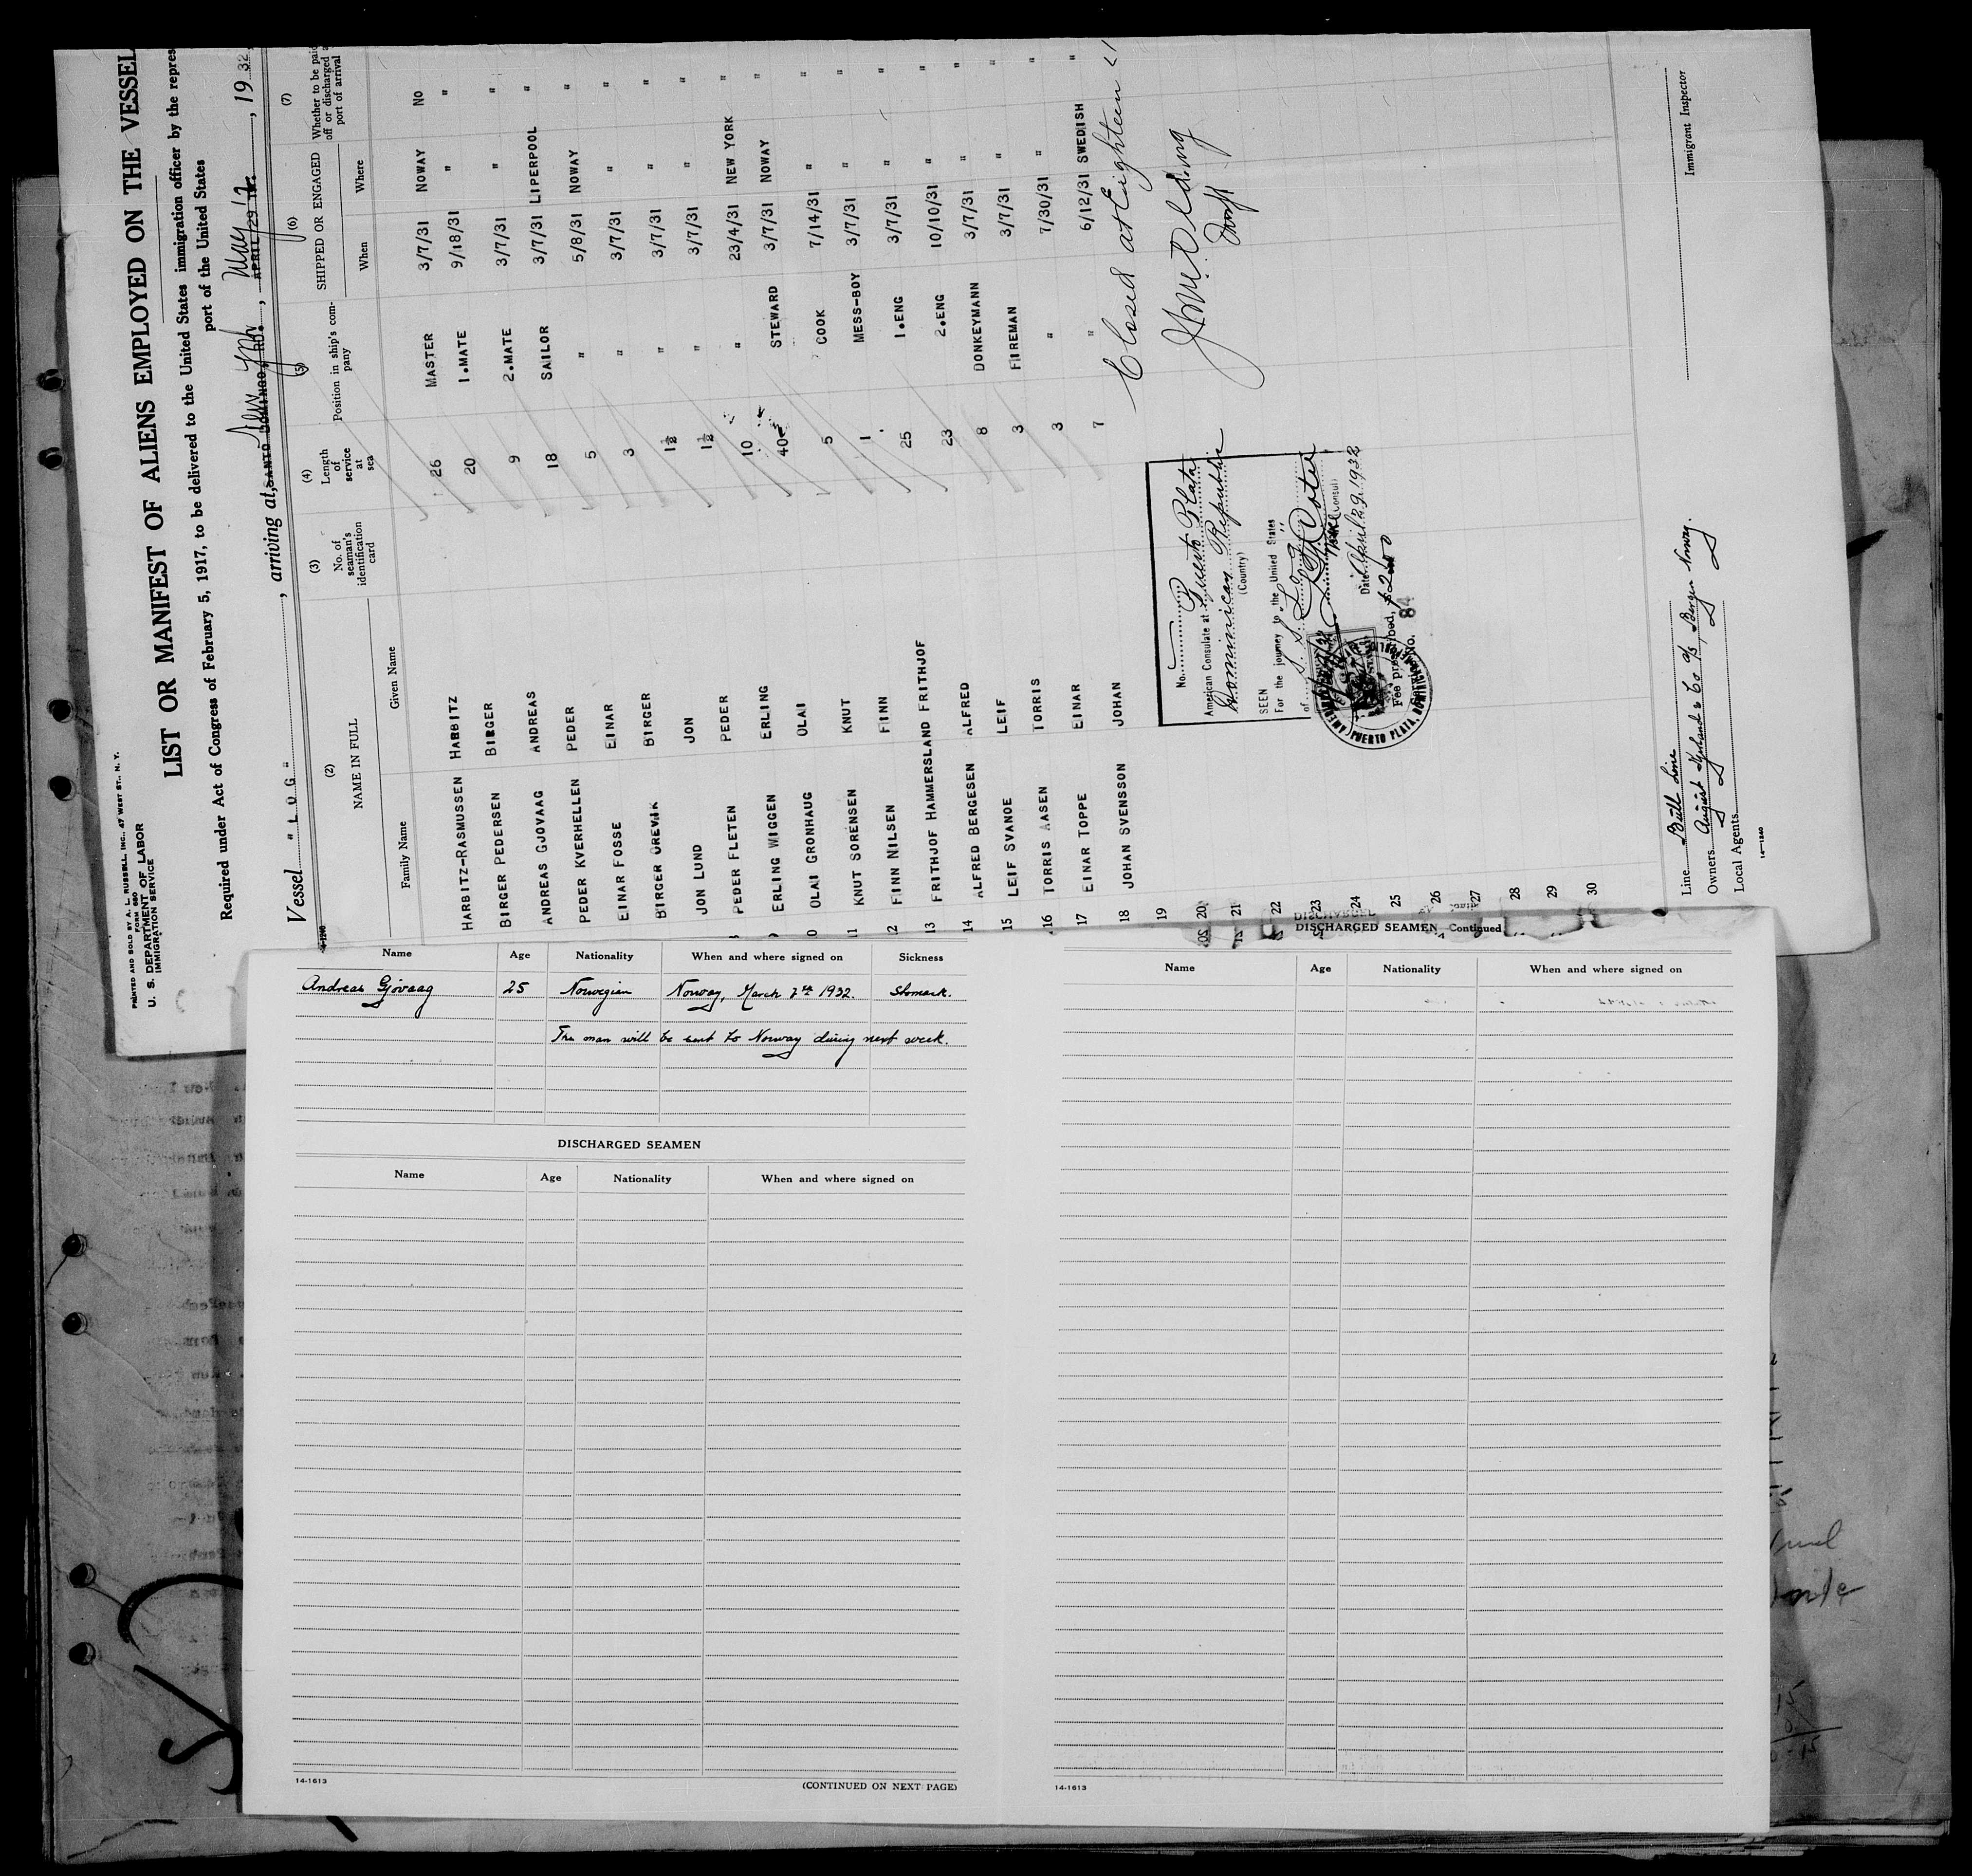 PRINTED AND SOLD BY A. L. RUSSELL, INC., 47 WEST ST., N. Y.
FORM 680
U. S. DEPARTMENT OF LABOR
IMMIGRATION SERVICE
LIST OR MANIFEST OF ALIENS EMPLOYED ON THE VESSEL
Required under Act of Congress of February 5, 1917, to be delivered to the United States immigration officer by the repres
port of the United States
Vessel "LOG", arriving at SANTO DOMINGO, RD. New York, APRIL 29 TH. May 12, 1932
(2) (3) (4) (5) (6) (7)
NAME IN FULL No. of seaman's identification card Length of service at sea Position in ship's company SHIPPED OR ENGAGED Whether to be paid off or discharged at port of arrival
Family Name Given Name When Where
HARBITZ-RASMUSSEN HARBITZ 26 MASTER 3/7/31 NOWAY NO
BIRGER PEDERSEN BIRGER 20 1.MATE 9/18/31 " "
ANDREAS GJOVAAG ANDREAS 9 2.MATE 3/7/31 " "
PEDER KVERHELLEN PEDER 18 SAILOR 3/7/31 LIPERPOOL "
EINAR FOSSE EINAR 5 " 5/8/31 NOWAY "
BIRGER OREVIK BIRGER 3 " 3/7/31 " "
JON LUND JON 1½ " 3/7/31 " "
PEDER FLETEN PEDER 1½ " 3/7/31 " "
ERLING WIGGEN ERLING 10 " 23/4/31 NEW YORK "
OLAI GRONHAUG OLAI 40 STEWARD 3/7/31 NOWAY "
11 KNUT SORENSEN KNUT 5 COOK 7/14/31 " "
12 FINN NILSEN FINN 1 MESS-BOY 3/7/31 " "
13 FRITHJOF HAMMERSLAND FRITHJOF 25 1.ENG 3/7/31 " "
14 ALFRED BERGESEN ALFRED 23 2.ENG 10/10/31 " "
15 LEIF SVANOE LEIF 8 DONKEYMANN 3/7/31 " "
16 TORRIS AASEN TORRIS 3 FIREMAN 3/7/31 " "
17 EINAR TOPPE EINAR 3 " 7/30/31 " "
18 JOHAN SVENSSON JOHAN 7 " 6/12/31 SWEDISH "
19
20
21
22
23
24
25
26
27
28
29
30
Closed at Eighteen
No.
American Consulate at Puerto Plata
Dominican Republic
(Country)
SEEN
For the journey to the United States
of S. S. LOG
Consul
Date April 29, 1932
Fee prescribed, $2.00
Service No. 84
PUERTO PLATA, DOMINICAN REPUBLIC
Line Bull Line
Owners August Kjerland & Co A/S, Bergen Norway.
Local Agents
14—1240
Immigrant Inspector
Name Age Nationality When and where signed on Sickness
Andreas Gjövaag 25 Norwegian Norway, March 7th 1932. Stomach.
The man will be sent to Norway during next week.
DISCHARGED SEAMEN
Name Age Nationality When and where signed on
14-1613
(CONTINUED ON NEXT PAGE)
DISCHARGED SEAMEN Continued
Name Age Nationality When and where signed on
14-1613